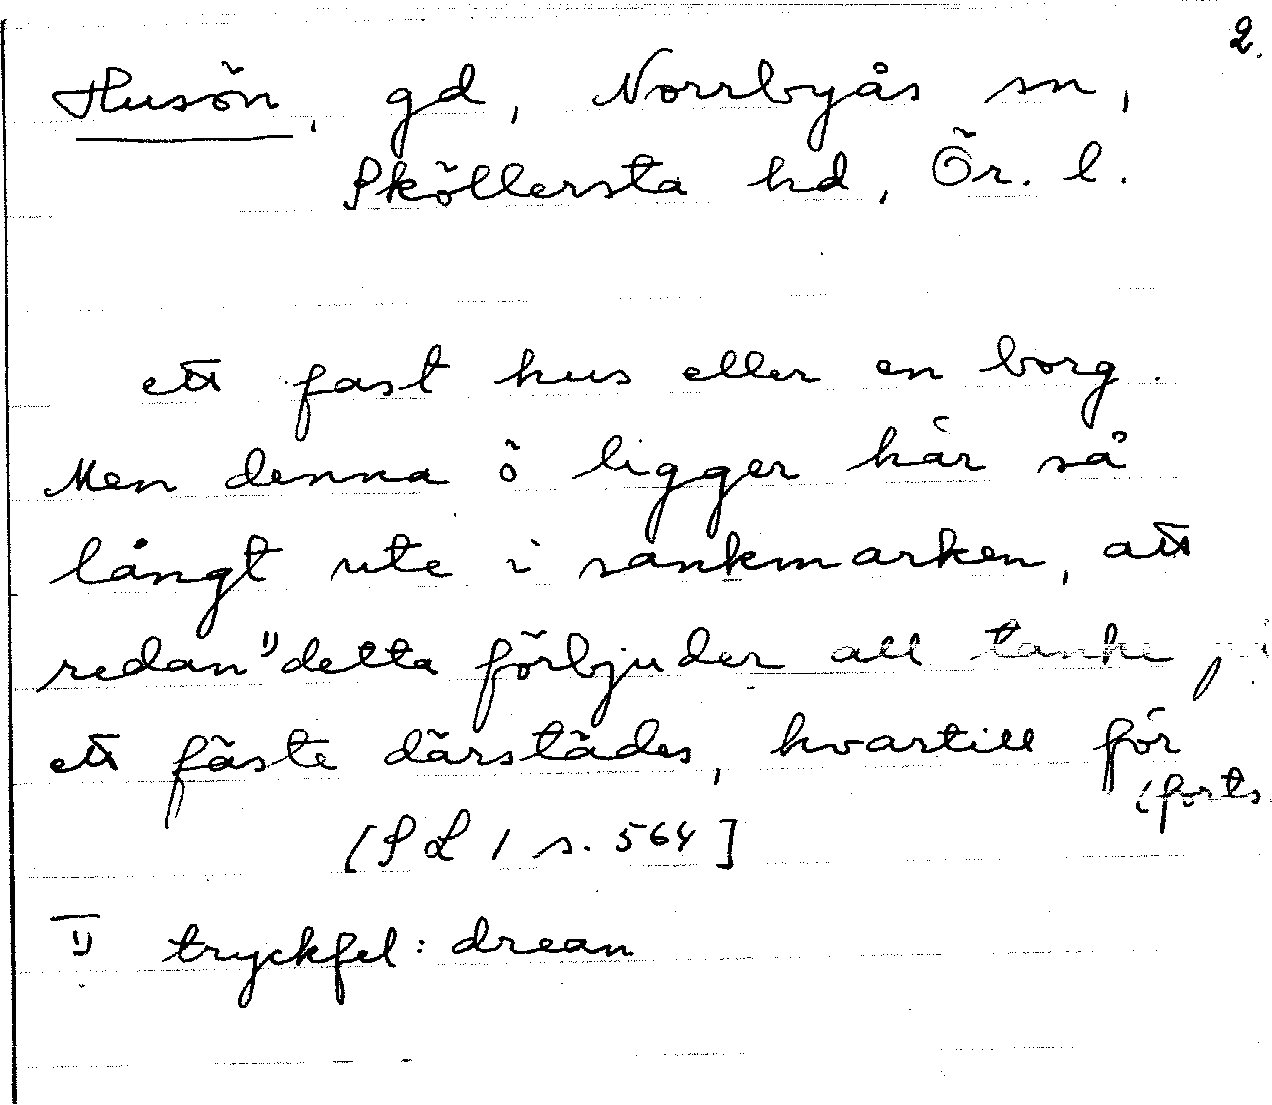 2.
Husön, gd, Norrbyås sn,
Sköllersta hd, Ör. l.
ett fast hus eller en borg.
Men denna ö ligger här så
långt ute i sankmarken, att
redan 1) detta förbjuder all tanke på
ett fäste därstädes, hvartill för
(forts
[SL 1 s. 564]
1) tryckfel: drean